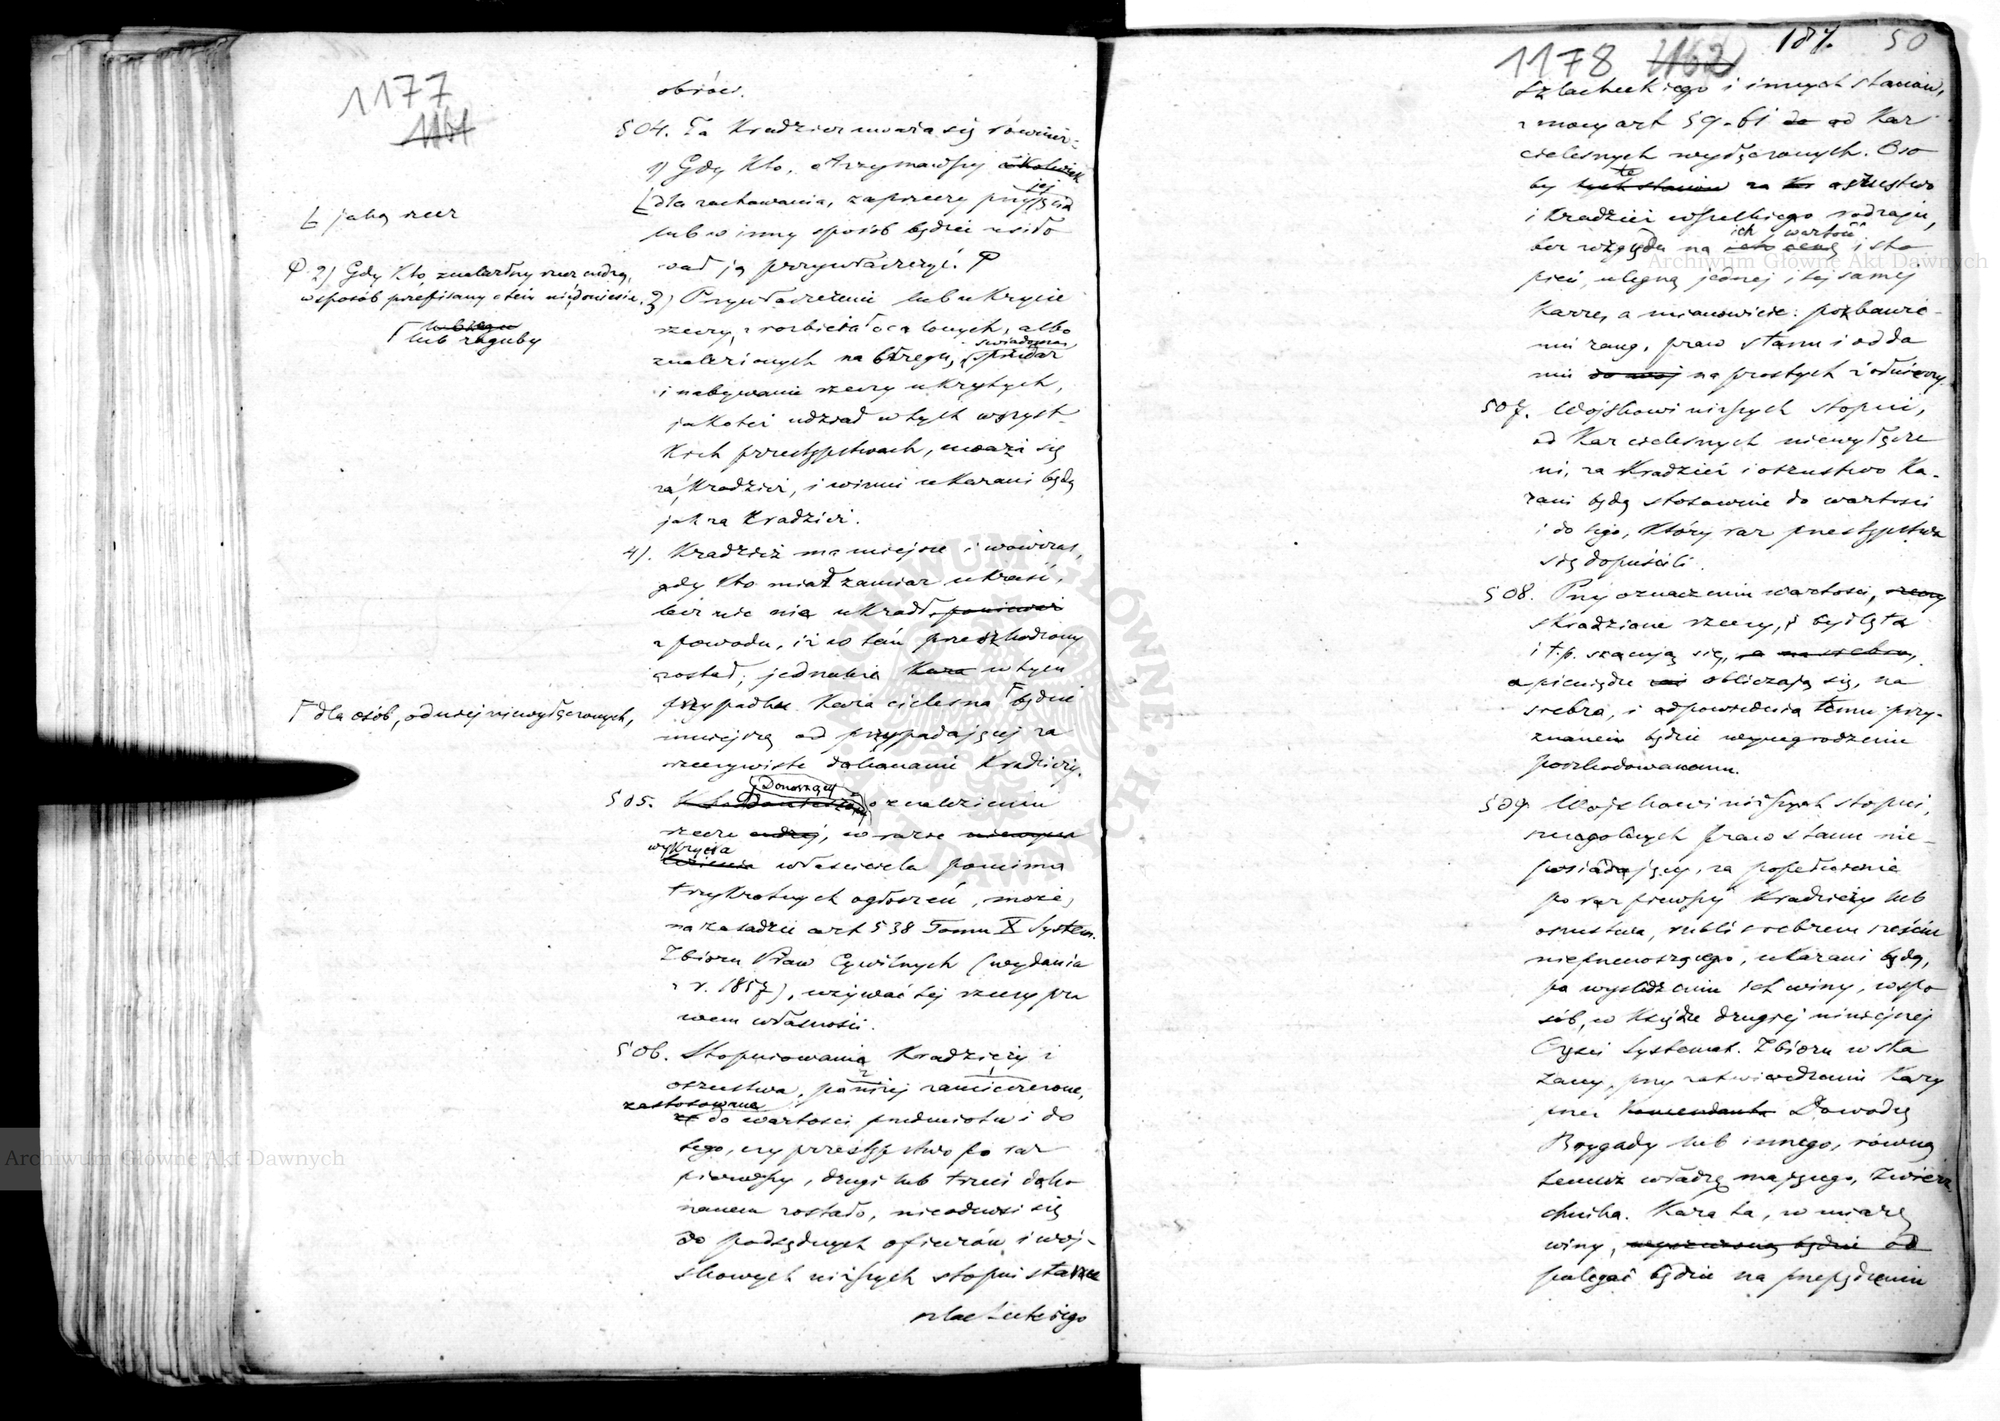 1177
1161
obrów.
504. Za Kradzież uważa się również:
1) Gdy Kto, otrzymawszy cokolwiek
Ł jaką rzecz
Ł dla zachowania, zaprzeczy przyjęcia jej
lub w inny sposób będzie usiło
wał ją przywłaszczyć. Ф
Ф 2) Gdy Kto, znalazłszy rzecz cudzą,
w sposób przepisany o tem niedoniesie.
3) Przywłaszczenie lub ukrycie
rzeczy, z rozbicia ocalonych, albo
lub zguby
znalezionych na brzegu, świadoma sprzedaż
i nabywanie rzeczy ukrytych,
jakoteż udział w tych wszyst-
kich przestępstwach, uważa się
za Kradzież, i winni ukarani będą
jak za Kradzież.
4). Kradzież ma miejsce i wówczas,
gdy Kto miał zamiar ukraść,
lecz nic nie ukradł, ponieważ
z powodu, iż w tem przeszkodzony
został; jednakże Kara w tym
przypadku Kara cielesna Г będzie
Г dla osób, od niej niewyłączonych,
mniejszą od przypadającej za
rzeczywiste dokonanie Kradzieży.
505. Donoszący o znalezieniu
rzeczy cudzej, w razie
wykrycia właściciela pomimo
trzykrotnych ogłoszeń, może,
na zasadzie art 538 Tomu X System.
Zbioru Praw Cywilnych (wydania
z r. 1857), używać tej rzeczy pra
wem własności.
506. Stopniowania Kradzieży i
oszustwa, poniżej zamieszczone,
zastosowane
do wartości przedmiotu i do
tego, czy przestępstwo po raz
pierwszy, drugi lub trzeci doko
nanem zostało, nieodnosi się
do podsądnych oficerów i woj-
skowych niższych stopni stanu
szlacheckiego
1178 1162 187. 50
szlacheckiego i innych stanów,
z mocy art 59-61 od Kar
cielesnych wyłączonych. Oso
by te za oszustwo
i Kradzież wszelkiego rodzaju,
bez względu na ich wartość i sto
pień, ulegną jednej i tej samej
Karze, a mianowicie: pozbawie-
niu rang, praw stanu i odda
niu na prostych żołnierzy.
507. Wojskowi niższych stopni,
od Kar cielesnych niewyłącze
ni, za Kradzież i oszustwo Ka-
rani będą stosownie do wartości
i do tego, Który raz przestępstwa
się dopuścili.
508. Przy oznaczeniu wartości, rzeczy
skradzione rzeczy, i bydlęta
i t.p. szacują się, a na srebro,
a pieniądze obliczają się, na
srebro, i odpowiednia temu przy-
znanem będzie wynagrodzenie
poszkodowanemu.
509. Wojskowi niższych stopni,
szczególnych praw stanu nie-
posiadający, za popełnienie
po raz pierwszy Kradzieży lub
oszustwa, rubli srebrem sześciu
nieprzenoszącego, ukarani będą,
po wyśledzeniu ich winy, w spo
sób, w Księdze drugiej niniejszej
Części Systemat. Zbioru wska
zany, przy zatwierdzeniu Kary
przez Komendanta Dowódzcę
Brygady lub innego, równą
temuż władzę mającego, Zwierz
chnika. Kara ta, w miarę
winy, wyznaczoną będzie od
polegać będzie na przepędzeniu
Archiwum Główne Akt Dawnych
Archiwum Główne Akt Dawnych